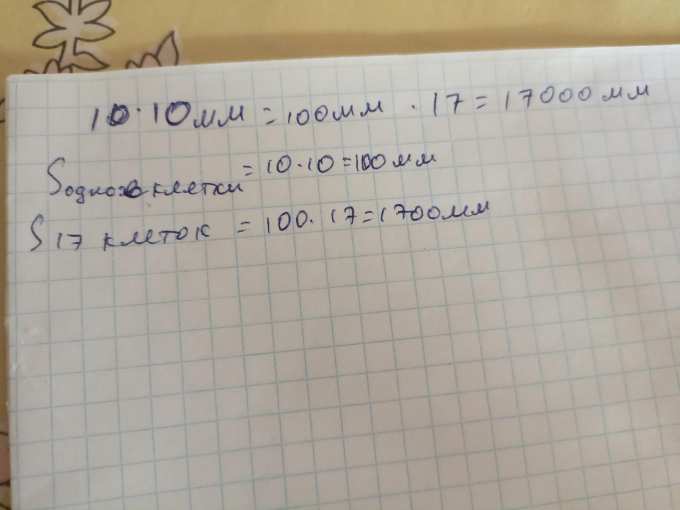 10 · 10 мм = 100 мм · 17 = 17000 мм
S одной клетки = 10 · 10 = 100 мм
S 17 клеток = 100 · 17 = 1700 мм